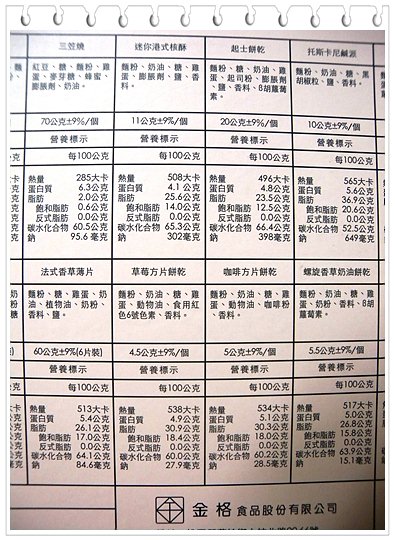 三笠燒
迷你港式核酥
起士餅乾
托斯卡尼鹹派
紅豆、糖、麵粉、雞
蛋、麥芽糖、蜂蜜、
膨脹劑、奶油。
麵粉、糖、奶油、雞
蛋、膨脹劑、鹽、香
料。
麵粉、糖、奶油、雞
蛋、起司粉、膨脹劑
、鹽、香料、ß胡蘿蔔
素。
麵粉、奶油、糖、黑
胡椒粒、鹽、香料。
70公克±9%/個
11公克±9%/個
20公克±9%/個
10公克±9%/個
營養標示
營養標示
營養標示
營養標示
每100公克
每100公克
每100公克
每100公克
熱量 285大卡
蛋白質 6.3公克
脂肪 2.0公克
飽和脂肪 0.6公克
反式脂肪 0.0公克
碳水化合物 60.5公克
鈉 95.6 毫克
熱量 508大卡
蛋白質 4.1 公克
脂肪 25.6公克
飽和脂肪 14.0公克
反式脂肪 0.0公克
碳水化合物 65.3公克
鈉 302毫克
熱量 496大卡
蛋白質 4.8公克
脂肪 23.5公克
飽和脂肪 12.5公克
反式脂肪 0.0公克
碳水化合物 66.4公克
鈉 398毫克
熱量 565大卡
蛋白質 5.6公克
脂肪 36.9公克
飽和脂肪 20.6公克
反式脂肪 0.0公克
碳水化合物 52.5公克
鈉 649毫克
法式香草薄片
草莓方片餅乾
咖啡方片餅乾
螺旋香草奶油餅乾
麵粉、糖、雞蛋、奶
油、植物油、奶粉、
香料、鹽。
麵粉、奶油、糖、雞
蛋、動物油、食用紅
色6號色素、香料。
麵粉、奶油、糖、雞
蛋、動物油、咖啡粉
、香料。
麵粉、奶油、糖、雞
蛋、奶粉、香料、ß胡
蘿蔔素。
60公克±9%(6片裝)
4.5公克±9%/個
5公克±9%/個
5.5公克±9%/個
營養標示
營養標示
營養標示
營養標示
每100公克
每100公克
每100公克
每100公克
熱量 513大卡
蛋白質 5.4公克
脂肪 26.1公克
飽和脂肪 17.0公克
反式脂肪 0.0公克
碳水化合物 64.1公克
鈉 84.6毫克
熱量 538大卡
蛋白質 4.9公克
脂肪 30.9公克
飽和脂肪 18.4公克
反式脂肪 0.0公克
碳水化合物 60.2公克
鈉 27.9毫克
熱量 534大卡
蛋白質 5.1公克
脂肪 30.3公克
飽和脂肪 18.0公克
反式脂肪 0.0公克
碳水化合物 60.2公克
鈉 28.5毫克
熱量 517大卡
蛋白質 5.0公克
脂肪 26.8公克
飽和脂肪 15.8公克
反式脂肪 0.0公克
碳水化合物 63.9公克
鈉 15.1毫克
金格食品股份有限公司